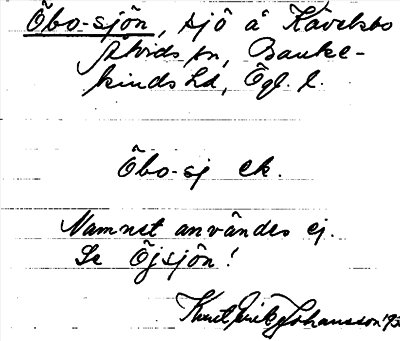 Öbo-sjön, sjö å Käveksbo
Åtvids sn, Banke-
kinds hd, Ögl. l.
Öbo-sj ek.
Namnet användes ej.
Se Öjsjön!
Knut Erik Johansson